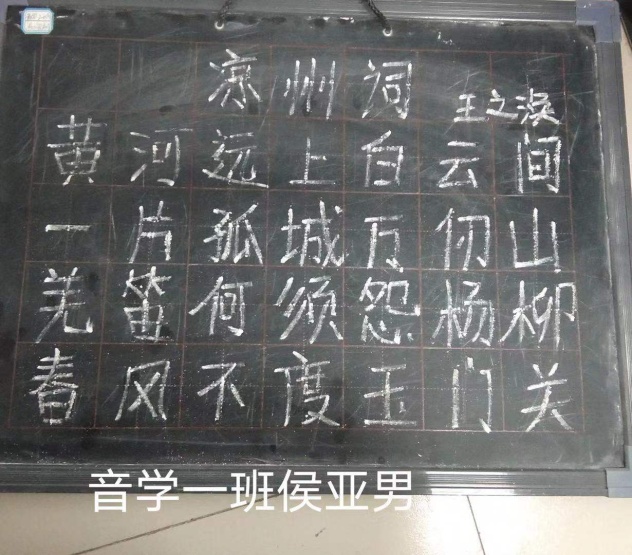 凉州词
王之涣
黄河远上白云间
一片孤城万仞山
羌笛何须怨杨柳
春风不度玉门关
音学一班侯亚男